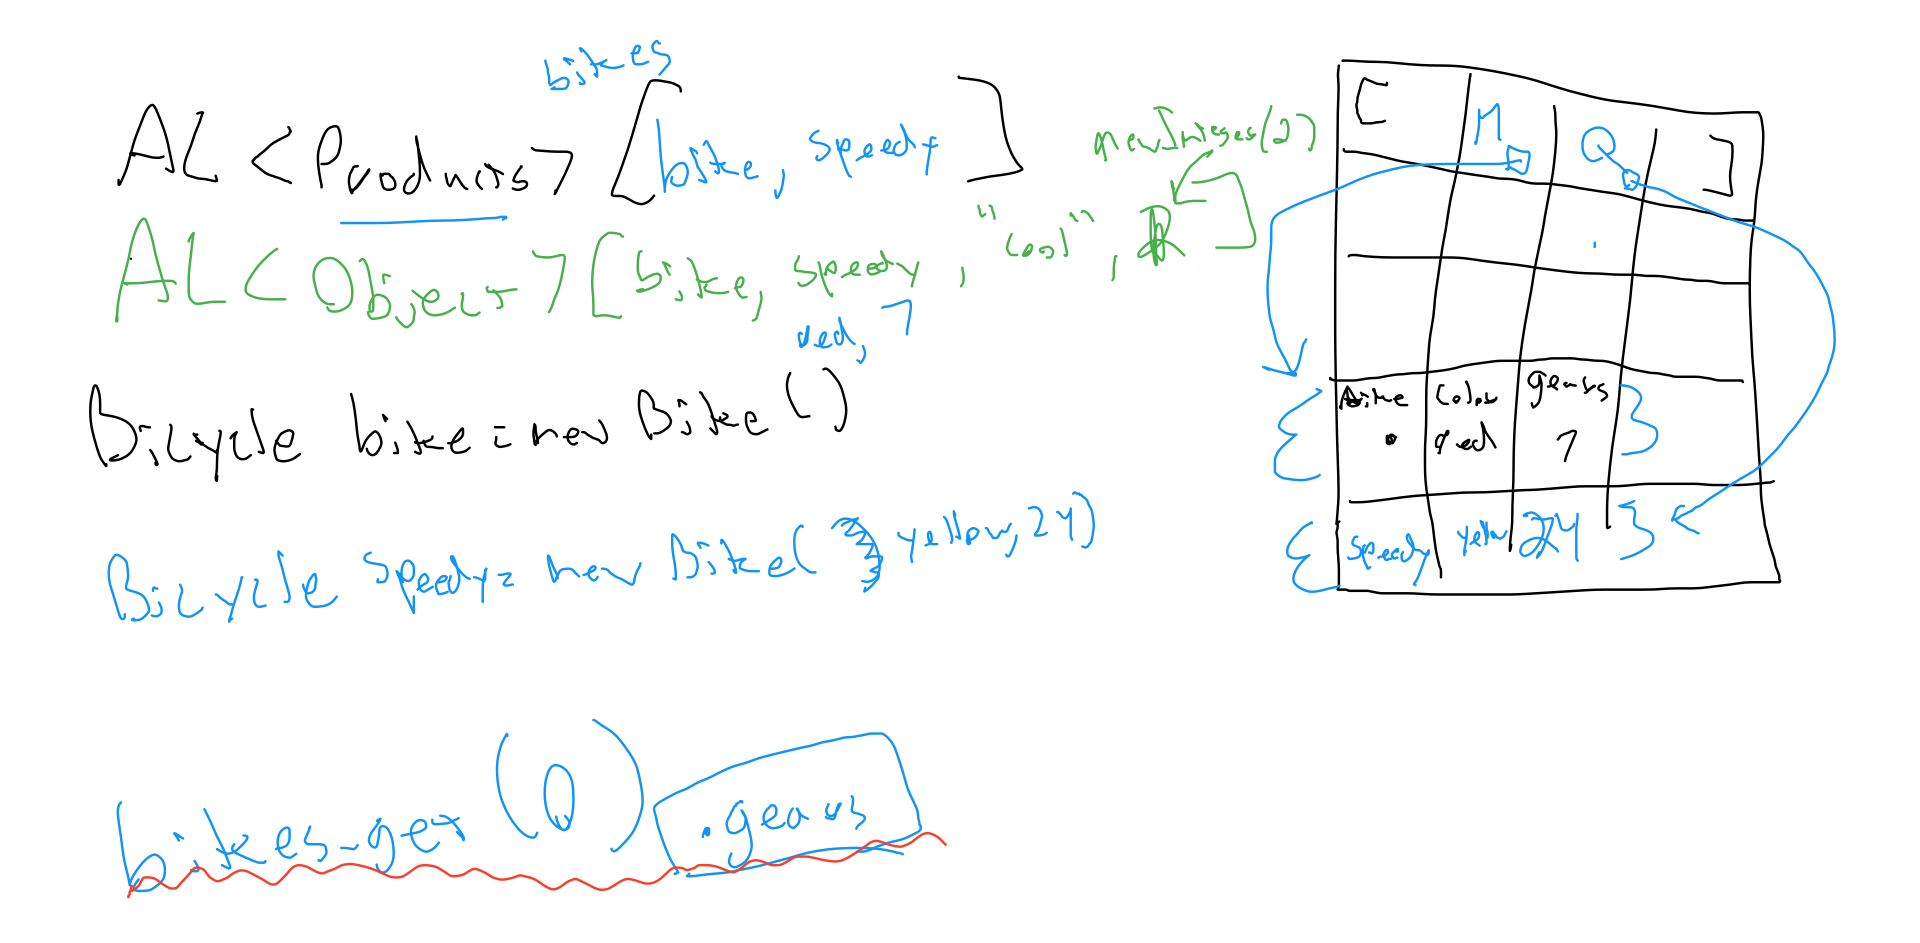 bikes
AL <Products> [bike, speedy]
new Integer(2)
AL <Object> [bike, speedy, "cool",
red, 7
Bicycle bike = new Bike()
Bicycle speedy = new Bike( yellow, 24)
bikes.get(0).gears
[ M Q ]
Bike color gears
red 7 }
{ speedy yellow 24 }